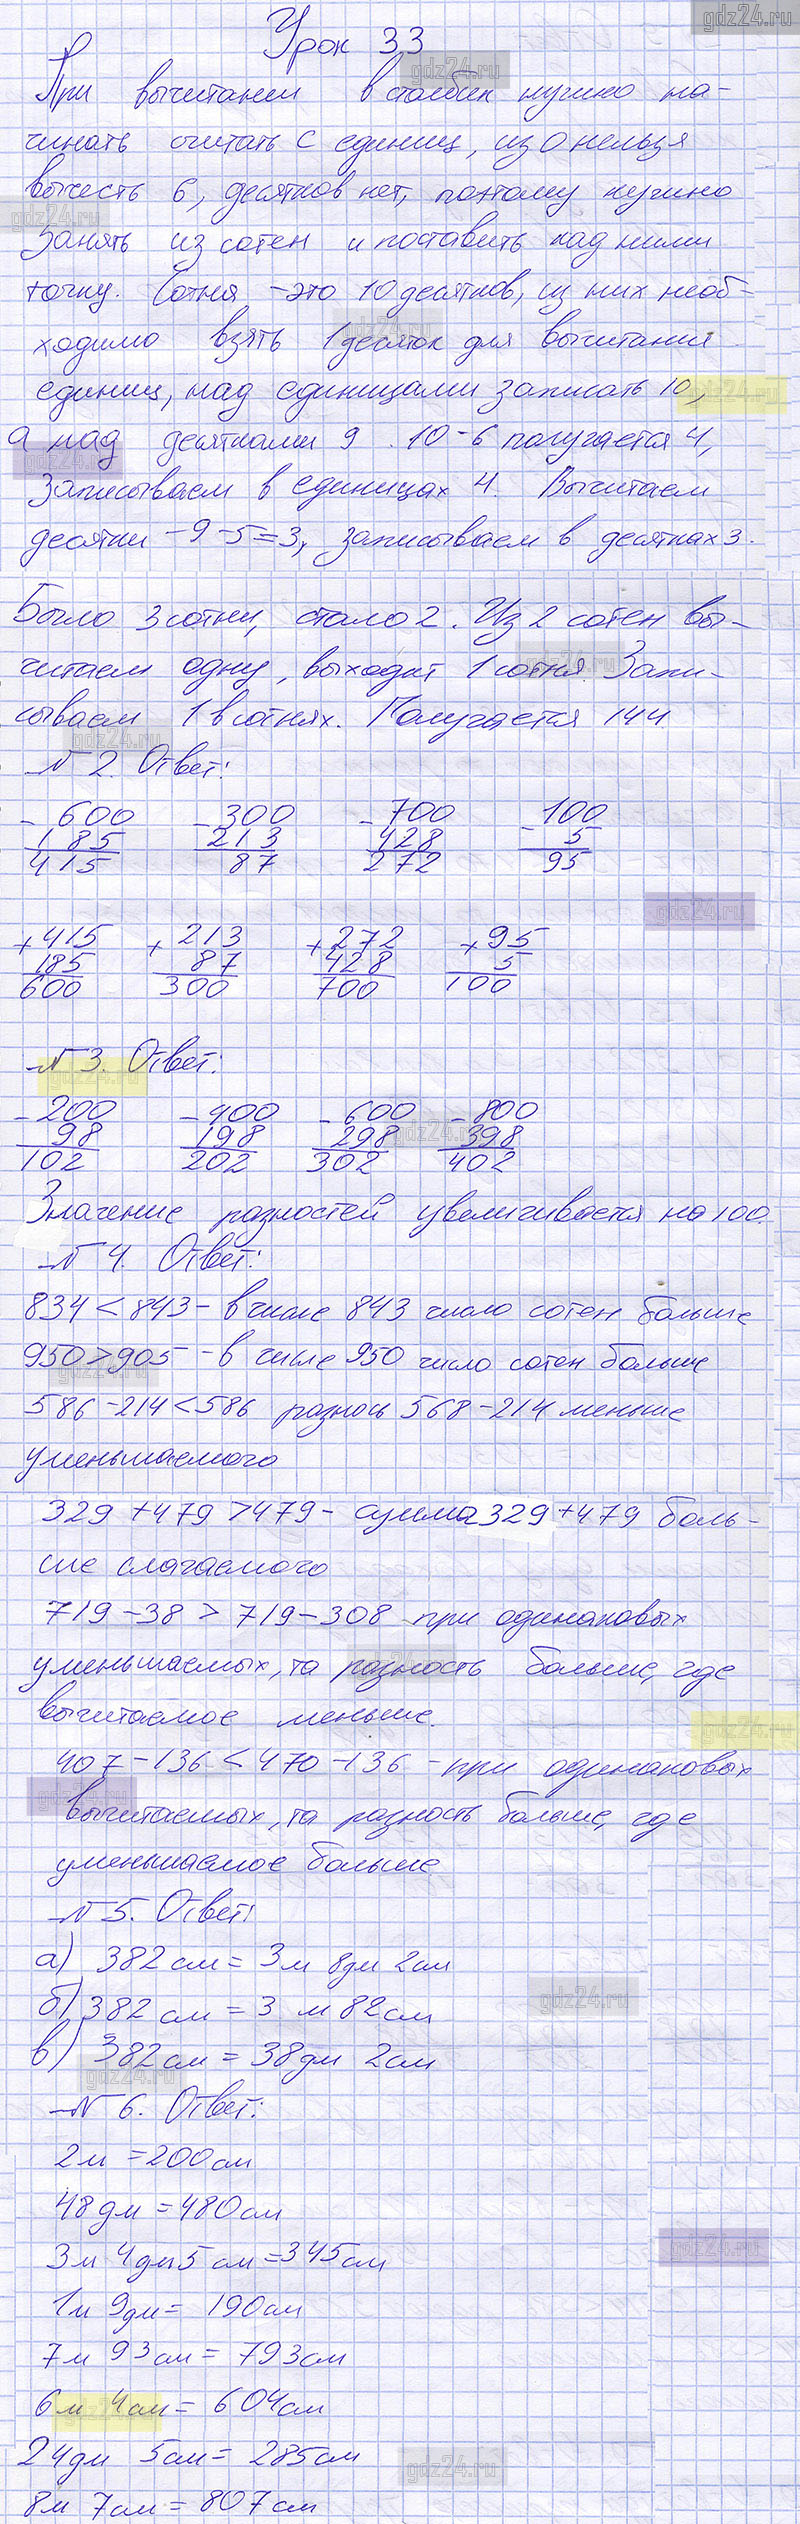 gdz24.ru
Урок 33
gdz24.ru
При вычитании в столбик нужно на-
чинать считать с единиц, из 0 нельзя
вычесть 6, десятков нет, поэтому нужно
gdz24.ru
занять из сотен и поставить над ними
точку. Сотня - это 10 десятков, из них необ-
gdz24.ru
ходимо взять 1 десяток для вычитания
единиц, над единицами записать 10,
gdz24.ru
а над десятками 9. 10-6 получается 4,
gdz24.ru
записываем в единицах 4. Вычитаем
десятки - 9-5=3, записываем в десятках 3.
Было 3 сотни, стало 2. Из 2 сотен вы-
читаем одну, выходит 1 сотня. Запи-
gdz24.ru
сываем 1 в сотнях. Получается 144
gdz24.ru
N 2. Ответ:
- 600 - 300 - 700 - 100
185 213 428 5
415 87 272 95
gdz24.ru
+ 415 + 213 + 272 + 95
185 87 428 5
600 300 700 100
N 3. Ответ:
gdz24.ru
- 200 - 400 - 600 - 800
98 198 298 398
gdz24.ru
102 202 302 402
Значение разностей увеличивается на 100.
N 4. Ответ:
834 < 843 - в числе 843 число сотен больше
950 > 905 - в числе 950 число сотен больше
gdz24.ru
586 - 214 < 586 разнось 568 - 214 меньше
уменьшаемого
329 + 479 > 479 - сумма 329 + 479 боль-
ше слагаемого
719 - 38 > 719 - 308 при одинаковых
gdz24.ru
уменьшаемых, та разность больше, где
вычитаемое меньше.
gdz24.ru
407 - 136 < 470 - 136 - при одинаковых
gdz24.ru
вычитаемых, та разность больше, где
уменьшаемое больше
N 5. Ответ:
а) 382 см = 3 м 8 дм 2 см
gdz24.ru
б) 382 см = 3 м 82 см
в) 382 см = 38 дм 2 см
gdz24.ru
N 6. Ответ:
2 м = 200 см
48 дм = 480 см
gdz24.ru
3 м 4 дм 5 см = 345 см
1 м 9 дм = 190 см
7 м 93 см = 793 см
6 м 4 см = 604 см
gdz24.ru
24 дм 5 см = 285 см
gdz24.ru
8 м 7 см = 807 см